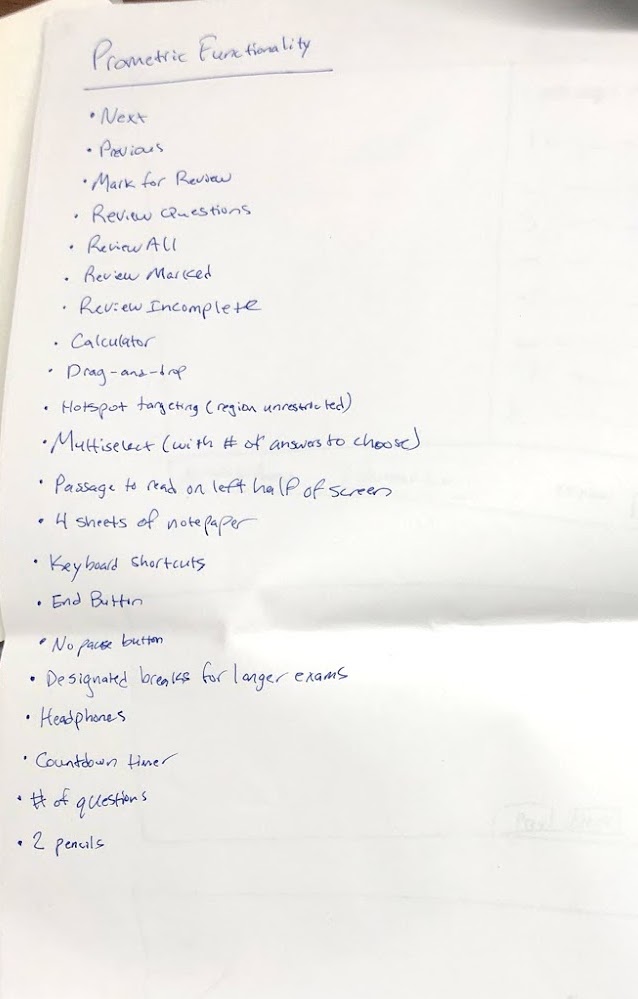 Prometric Functionality
• Next
• Previous
• Mark for Review
• Review Questions
• Review All
• Review Marked
• Review Incomplete
• Calculator
• Drag-and-drop
• Hotspot targeting (region unrestricted)
• Multiselect (with # of answers to choose)
• Passage to read on left half of screen
• 4 sheets of notepaper
• Keyboard shortcuts
• End Button
• No pause button
• Designated breaks for larger exams
• Headphones
• Countdown timer
• # of questions
• 2 pencils